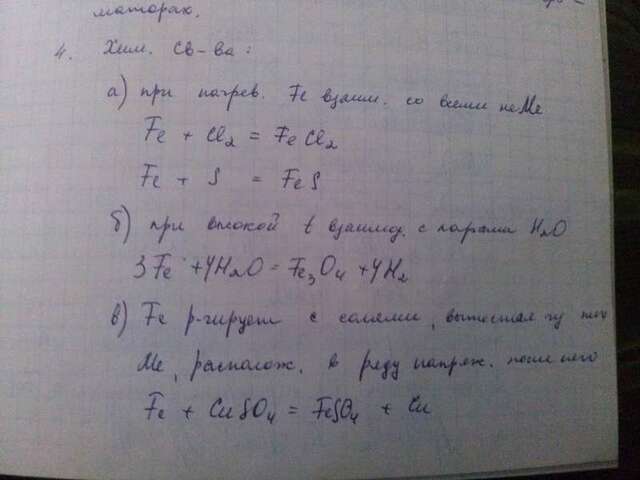 моторах.
4. Хим. св-ва:
а) при нагрев. Fe взаим. со всеми неMe
Fe + Cl2 = FeCl2
Fe + S = FeS
б) при высокой t взаимод. с парами H2O
3Fe + 4H2O = Fe3O4 + 4H2
в) Fe р-гирует с солями, вытесняя
Me, располож. в ряду напряж. после него
Fe + CuSO4 = FeSO4 + Cu